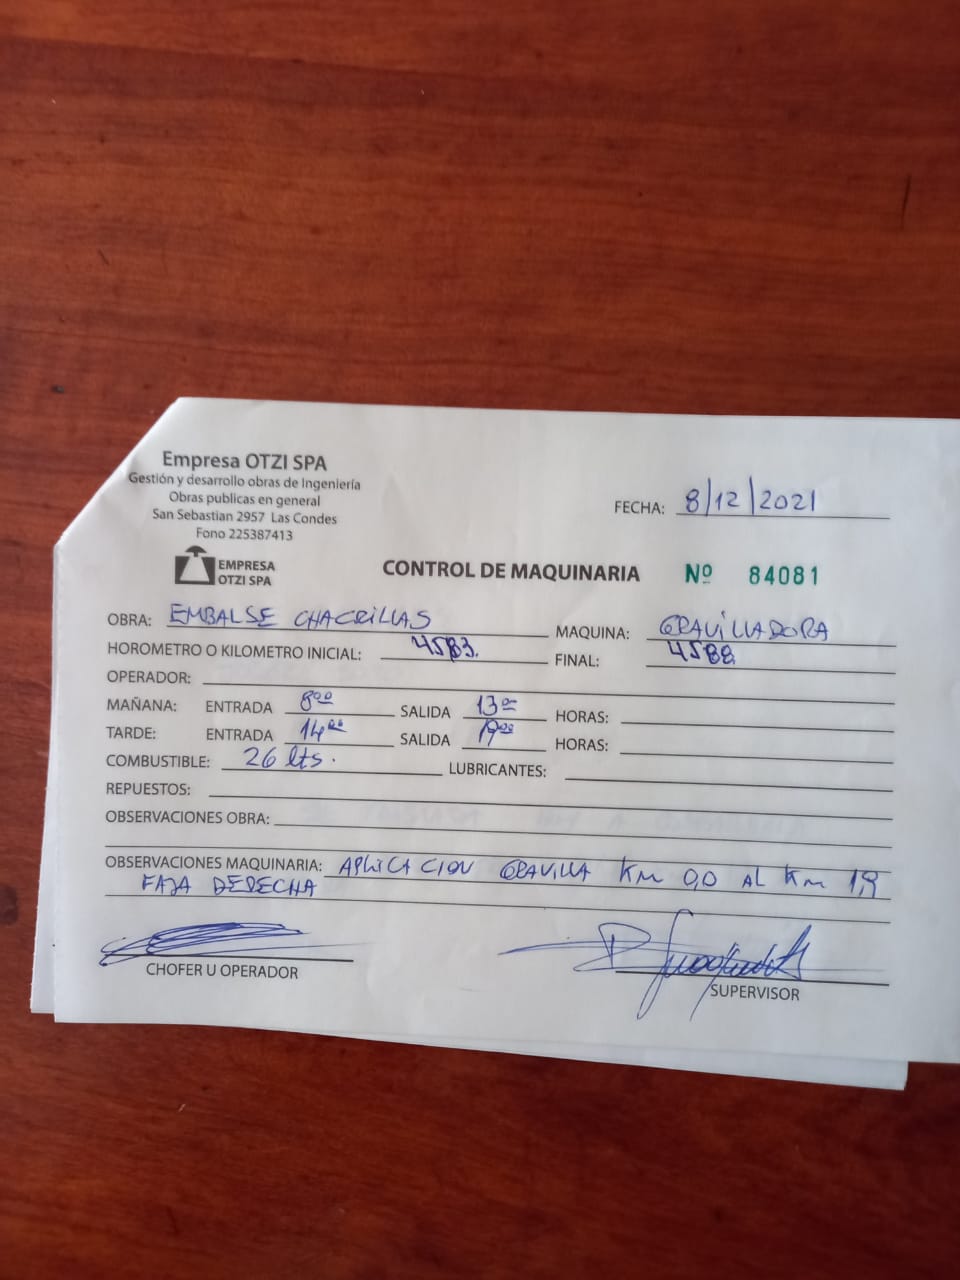 Empresa OTZI SPA
Gestión y desarrollo obras de Ingeniería
Obras publicas en general
San Sebastian 2957 Las Condes
Fono 225387413
EMPRESA
OTZI SPA
FECHA: 8/12/2021
CONTROL DE MAQUINARIA Nº 84081
OBRA: EMBALSE CHACRILLAS MAQUINA: GRAVILLADORA
HOROMETRO O KILOMETRO INICIAL: 4583. FINAL: 4588
OPERADOR:
MAÑANA: ENTRADA 800 SALIDA 1300 HORAS:
TARDE: ENTRADA 1400 SALIDA 1900 HORAS:
COMBUSTIBLE: 26 lts. LUBRICANTES:
REPUESTOS:
OBSERVACIONES OBRA:
OBSERVACIONES MAQUINARIA: APLICACION GRAVILLA Km 0,0 AL Km 1,9
FAJA DERECHA
CHOFER U OPERADOR
SUPERVISOR